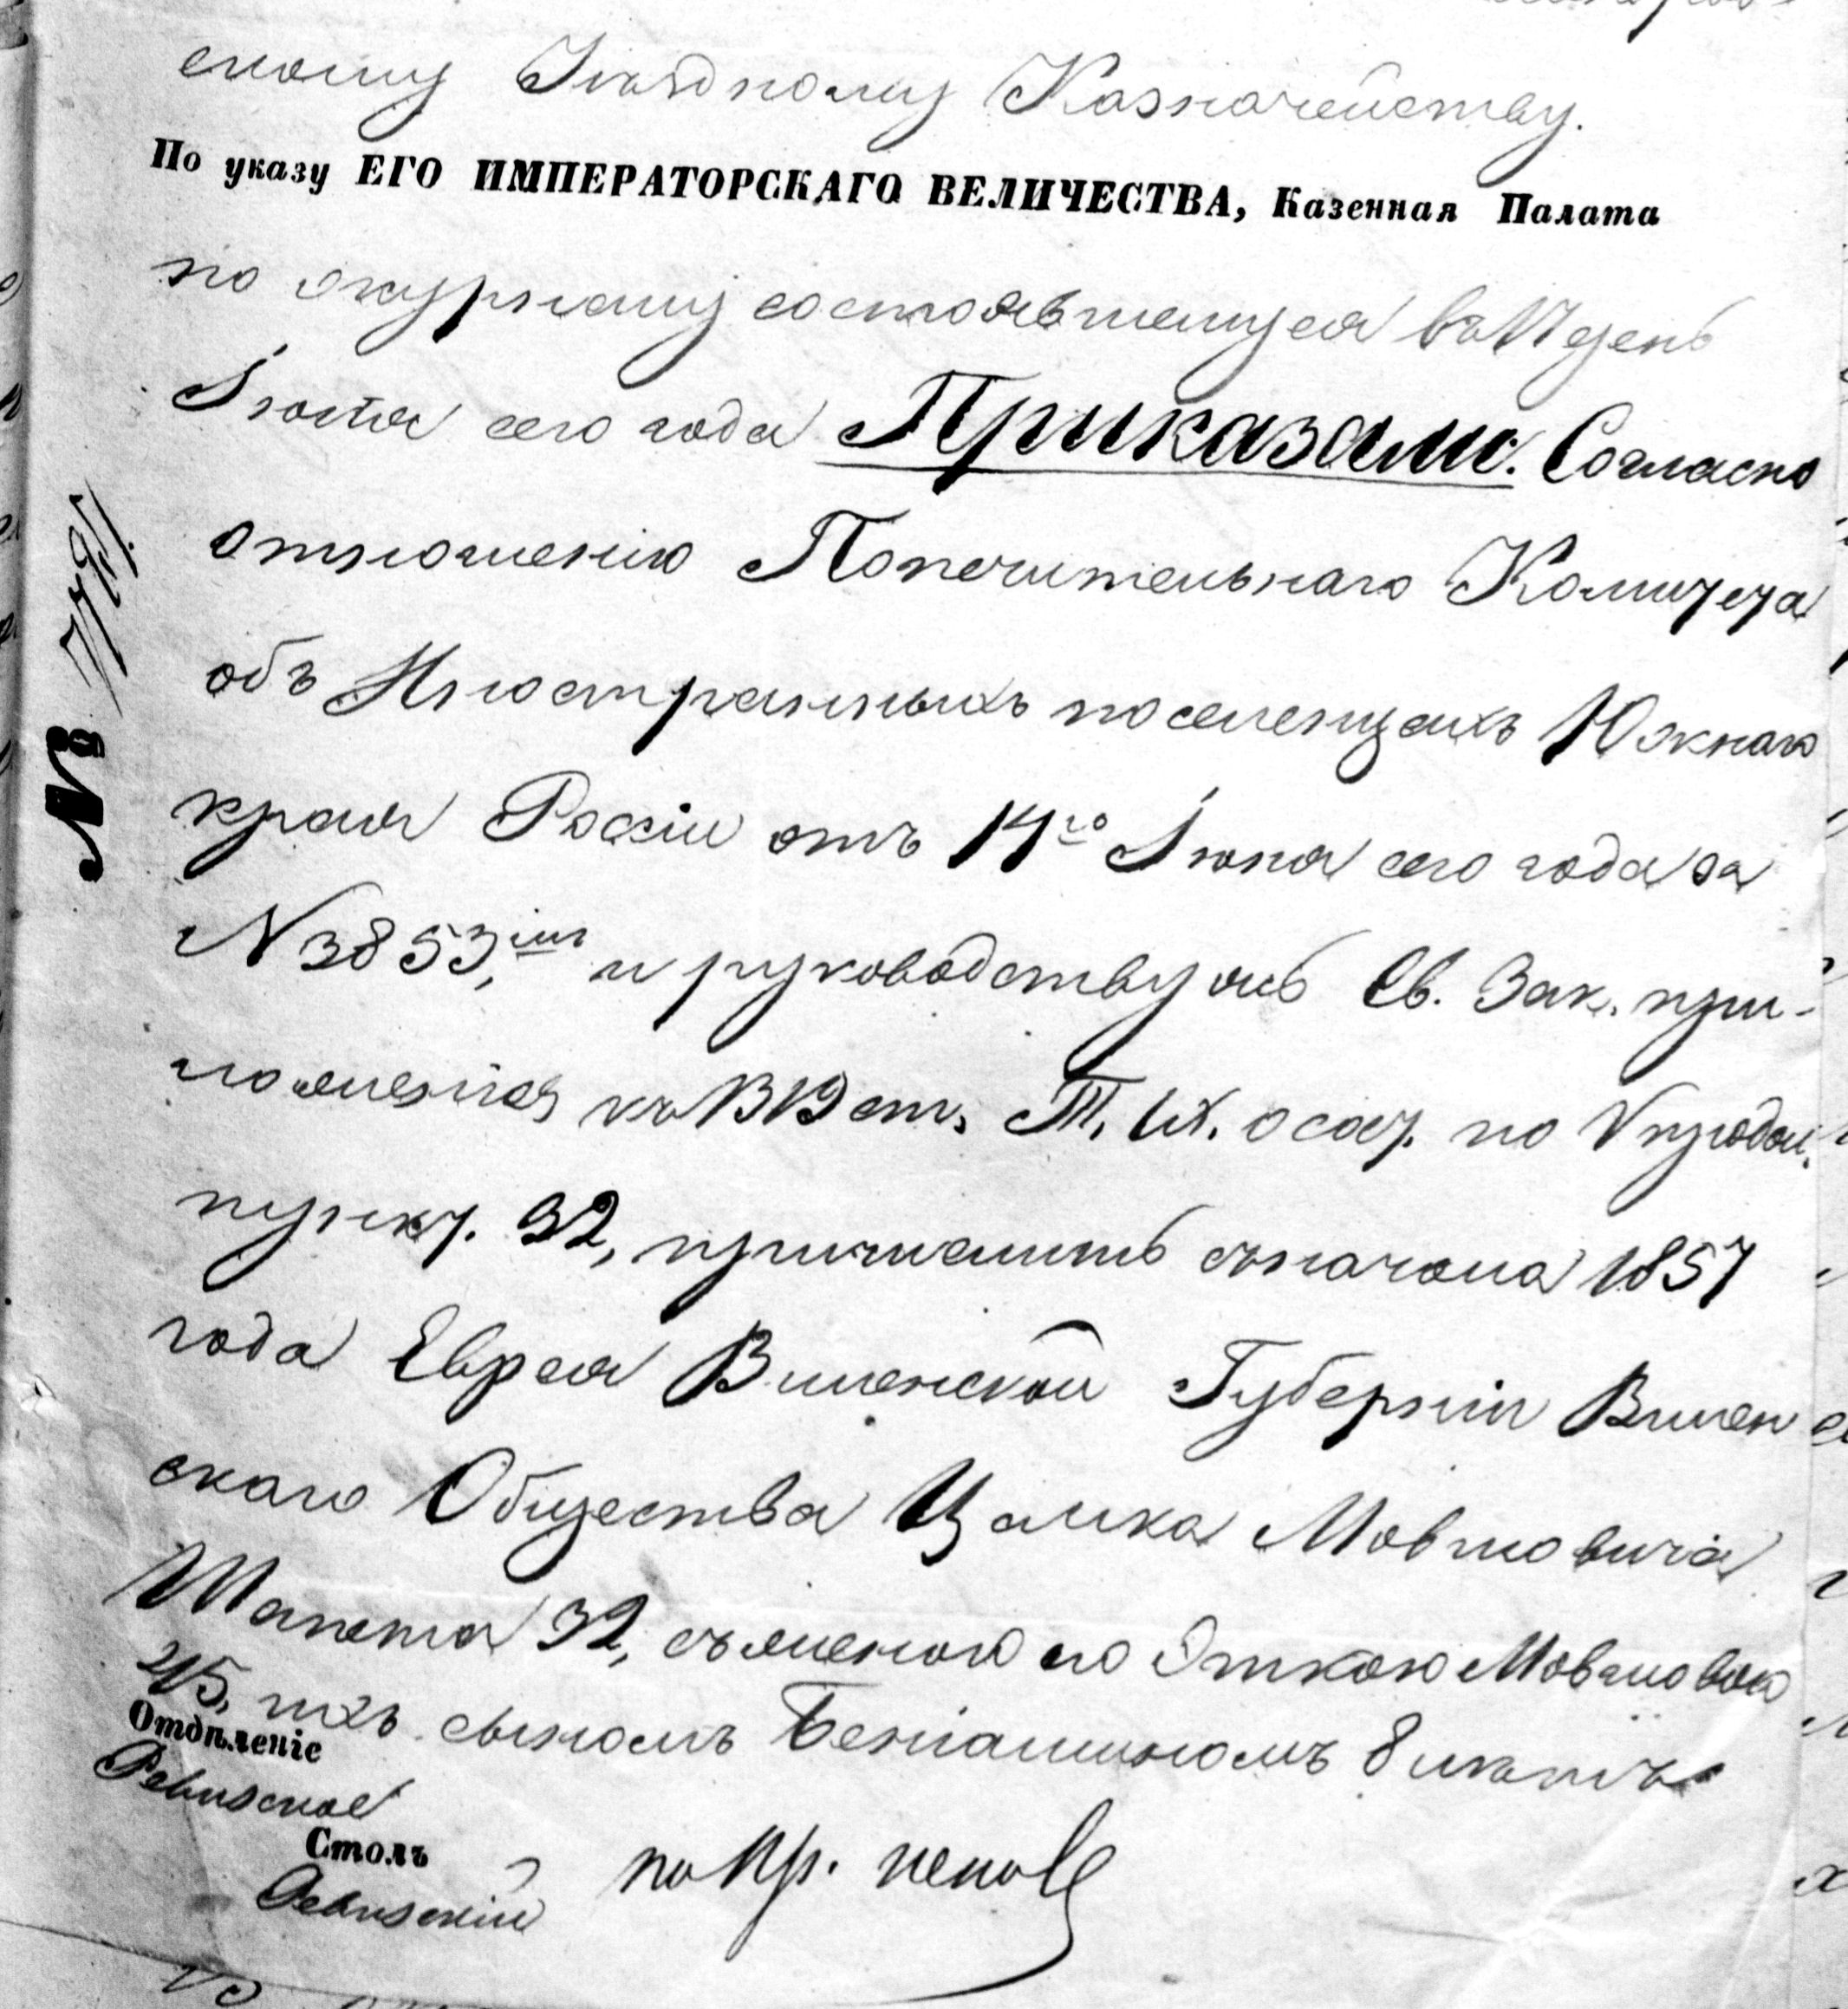 скому Уѣздному Казначейству.
По указу ЕГО ИМПЕРАТОРСКАГО ВЕЛИЧЕСТВА, Казенная Палата
по журналу состоявшемуся въ 17 день
Іюля сего года Приказали: Согласно
отношенію Попечительнаго Комитета
объ Иностранныхъ поселенцахъ Южнаго
края Россіи отъ 14го Іюня сего года за
N 3853, и руководствуясь Св. Зак. при-
ложенія къ ст. Т. IX. о сост. по V продол.
пункт. 32, причислить съ начала 1857
года Еврея Виленской Губерніи Вилен
скаго Общества Цалка Мовшовича
Шапета 32, съ женою его Эткою Мовшовою
25, ихъ сыномъ Беніаминомъ 8 лѣтъ
№
Отдѣленіе
Ревизское
Столъ
Ревизскій